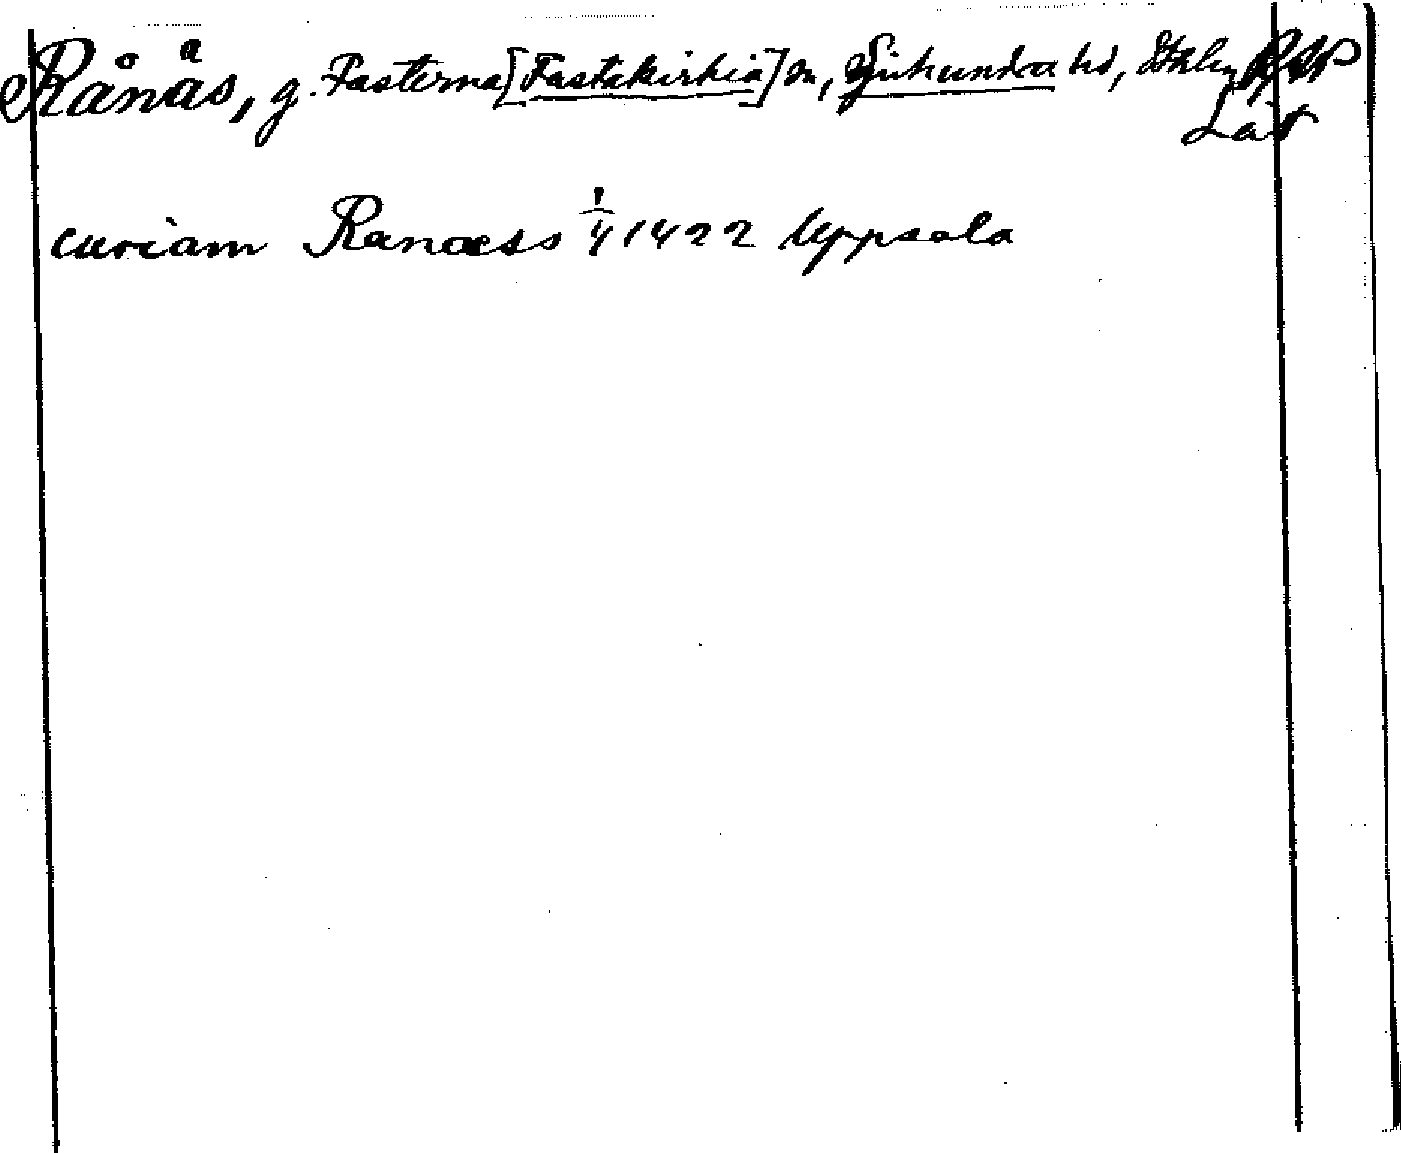 Rånäs, g. Fasterna [Fastakirkia] sn, Sjuhundra hd, Sthlm RAP
Lat
curiam Ranæss 1/4 1422 Uppsala